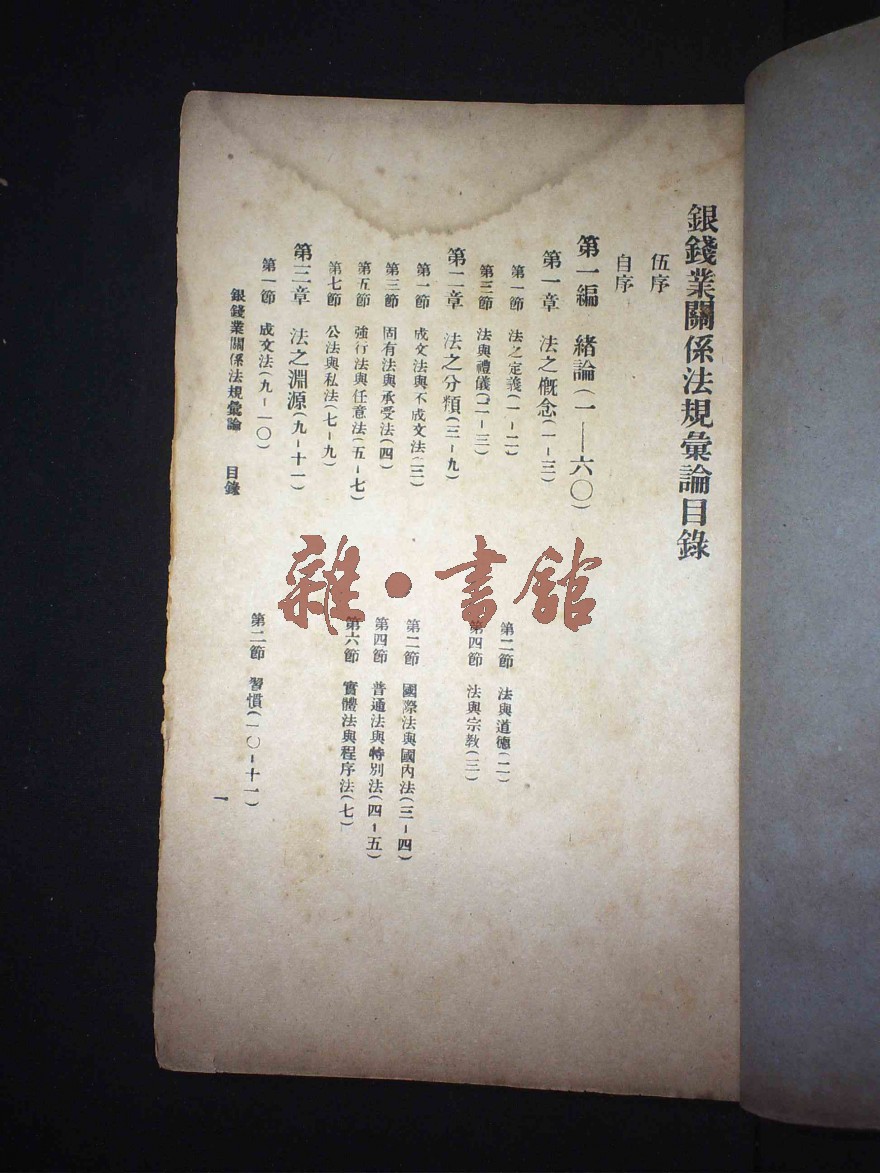 銀錢業關係法規彙論目錄
伍序
自序
第一編　緒論(一——六〇)
第一章　法之概念(一-三)
第一節　法之定義(一-二)
第二節　法與道德(二)
第三節　法與禮儀(二-三)
第四節　法與宗教(三)
第二章　法之分類(三-九)
第一節　成文法與不成文法(三)
第二節　國際法與國內法(三-四)
第三節　固有法與承受法(四)
第四節　普通法與特別法(四-五)
第五節　強行法與任意法(五-七)
第六節　實體法與程序法(七)
第七節　公法與私法(七-九)
第三章　法之淵源(九-十一)
第一節　成文法(九-一〇)
第二節　習慣(一〇-十一)
銀錢業關係法規彙論　目錄
一
雜·書館